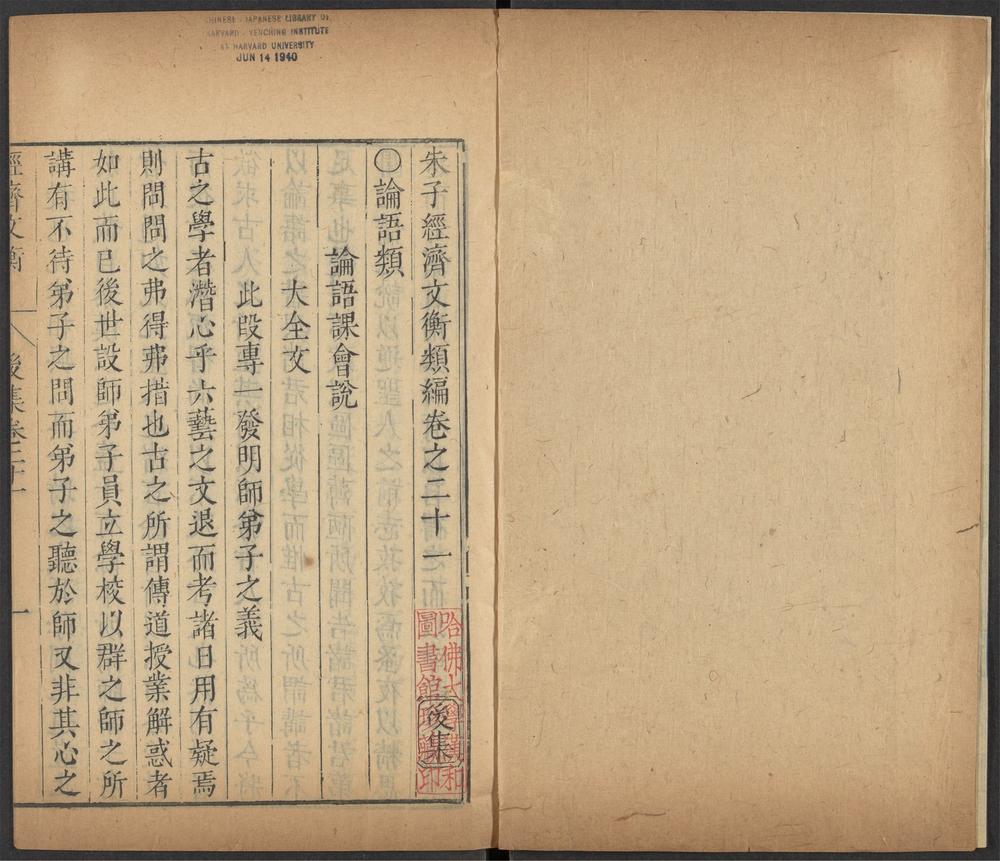 CHINESE - JAPANESE LIBRARY OF
HARVARD - YENCHING INSTITUTE
AT HARVARD UNIVERSITY
JUN 14 1940
朱子經濟文衡類編卷之二十一
後集
哈佛大學漢和
圖書館珍藏印
〇論語類
論語課會說
大全文
此段專一發明師弟子之義
古之學者潛心乎六藝之文退而考諸日用有疑焉
則問問之弗得弗措也古之所謂傳道授業解惑者
如此而已後世設師弟子員立學校以群之師之所
講有不待弟子之問而弟子之聽於師又非其心之
經濟文衡
後集卷二十一
一